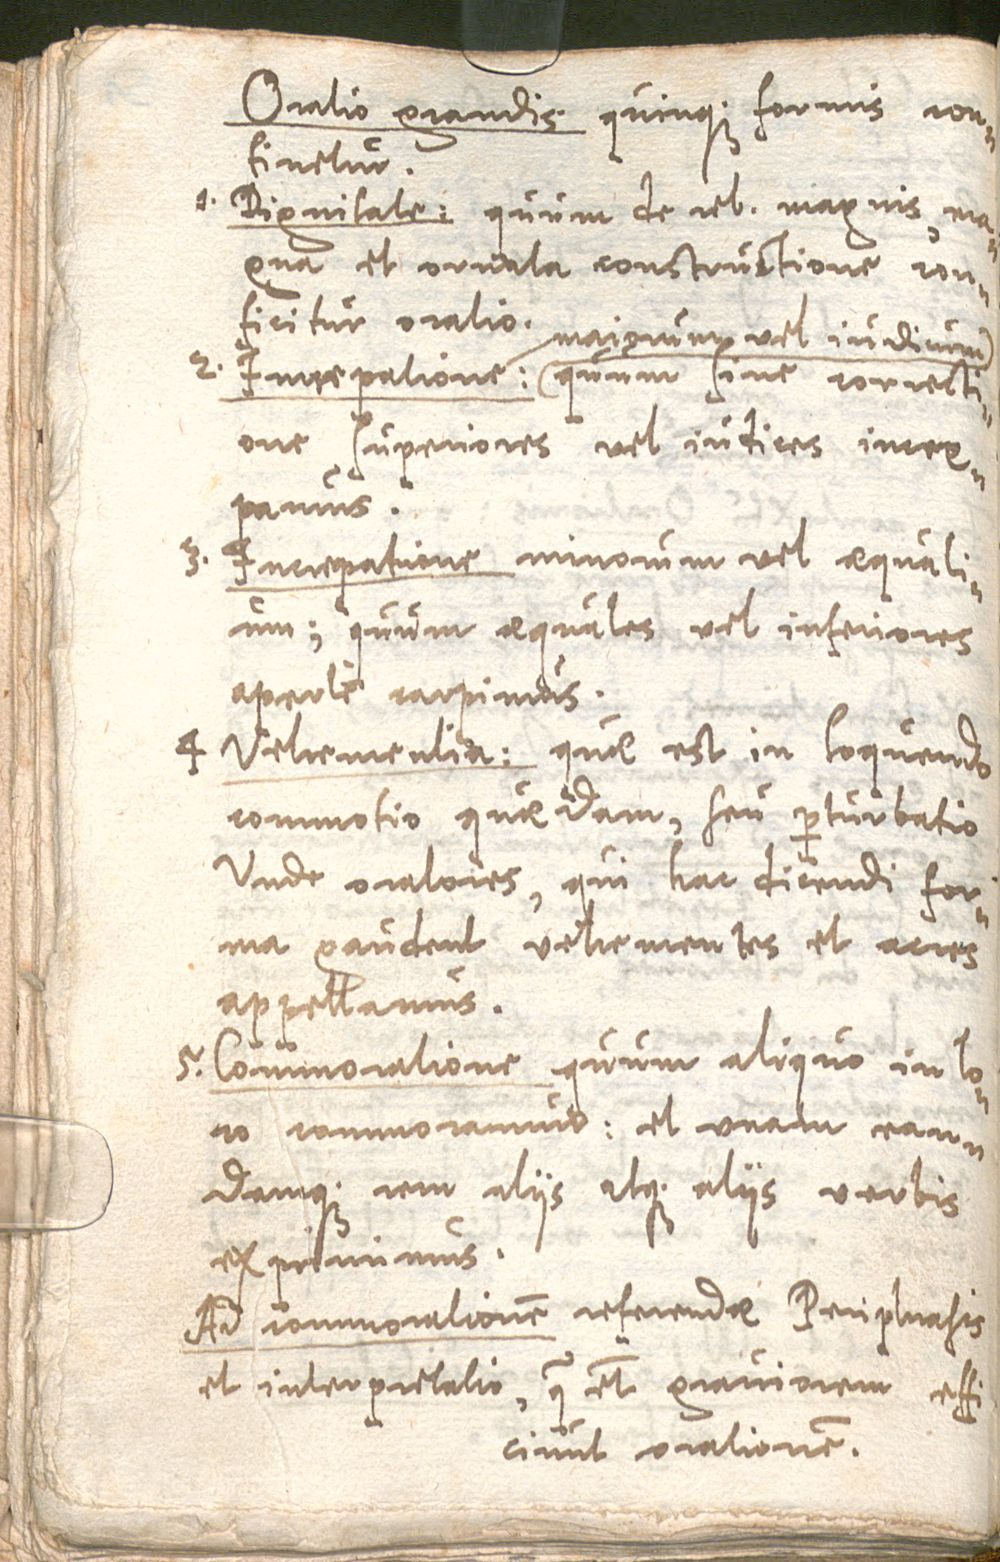 Oratio grandis quinq; formis con-
finetur.
1. Dignitate: quum de reb. magnis, ma-
gna et ornata constructione con-
ficitur oratio.
maiorum vel iudicum)
2. Increpatione: (quum sine correcti-
one superiores vel iudices incre-
pamus.
3. Increpatione minorum vel æquali-
um; quum æquales vel inferiores
apertè carpimus.
4 Vehementia: quæ est in loquendo
commotio quædam, seu p̱turbatio
Vnde oratores, qui hac dicendi for-
ma gaudent vehementes et acres
appellamus.
5. Commoratione quum aliquo in lo-
co commoramur: et vnam ean-
damq; rem alijs atq; alijs verbis
exprimimus.
Ad commorationē referendæ Periphrasis
et interpretatio, q̃ et̄ grauiorem effi
ciunt orationē.